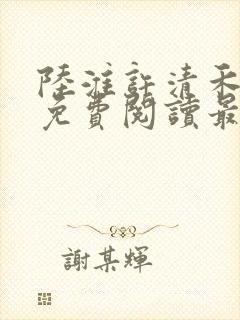 陸淮許清禾
免費閱讀最
謝某輝